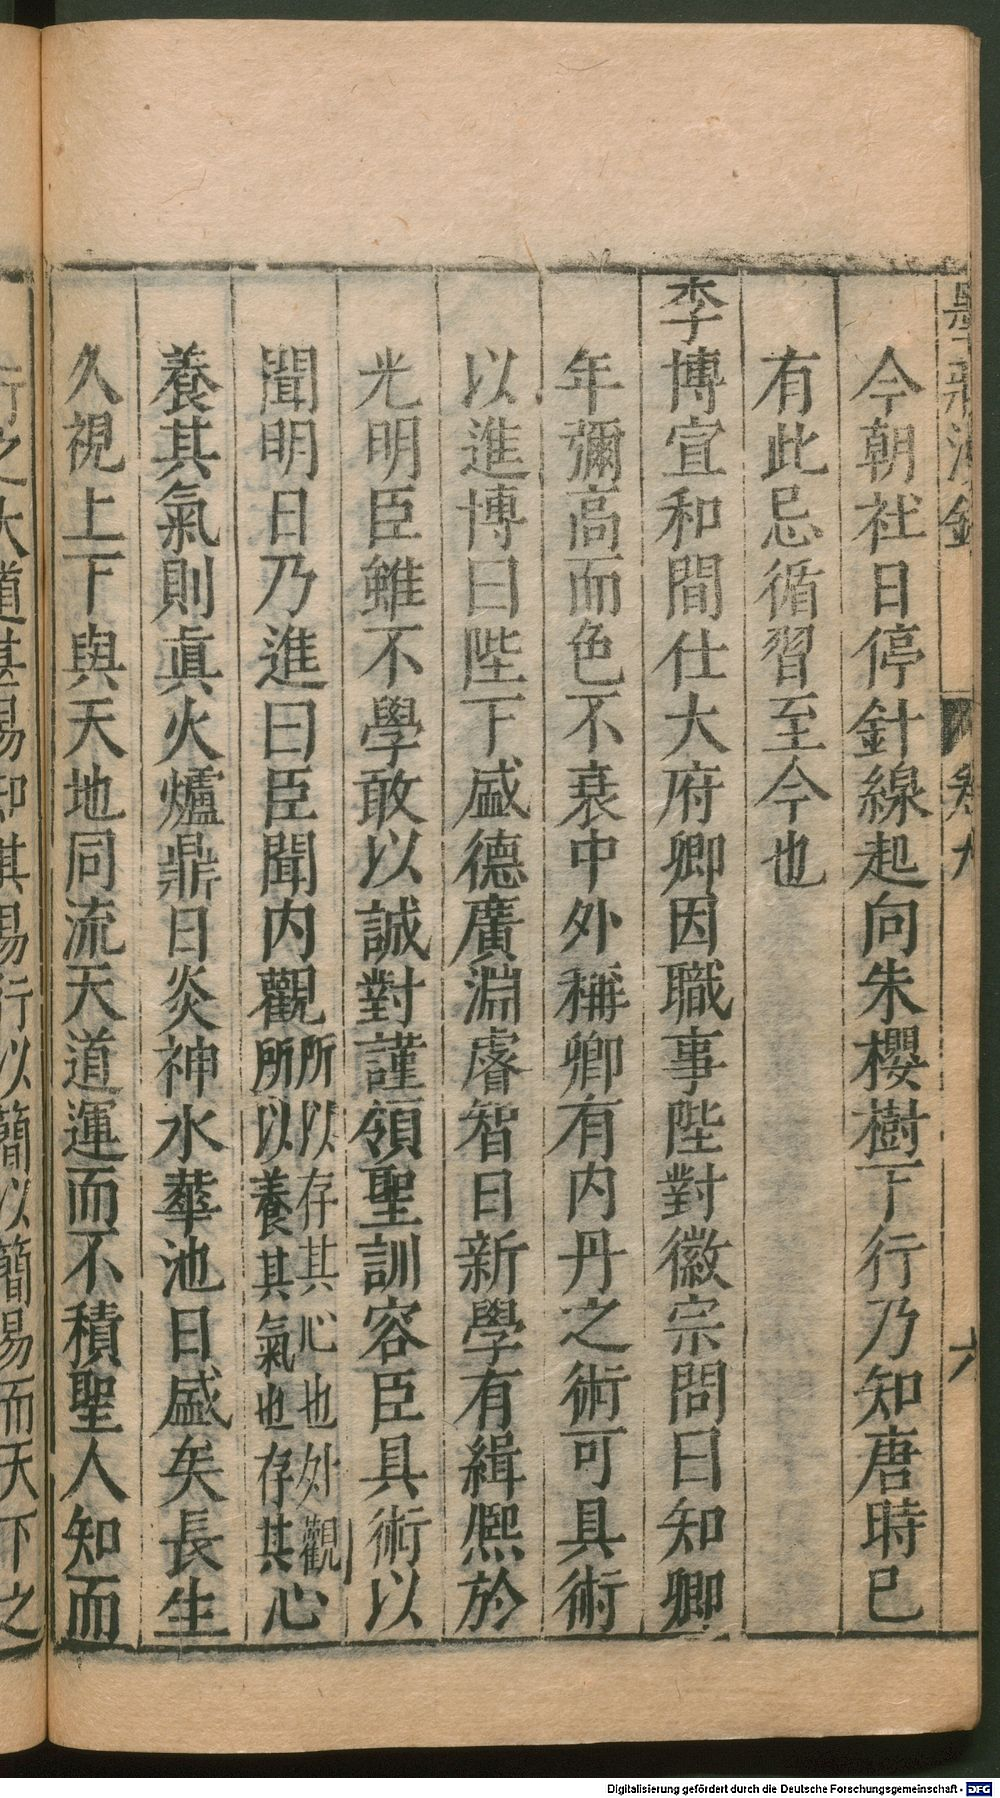 墨莊漫錄 卷九 六
今朝社日停針線起向朱櫻樹下行乃知唐時已
有此忌循習至今也
李博宣和間仕大府卿因職事陛對徽宗問曰知卿
年彌高而色不衰中外稱卿有内丹之術可具術
以進博曰陛下盛德廣淵睿智日新學有緝熈於
光明臣雖不學敢以誠對謹領聖訓容臣具術以
聞明日乃進曰臣聞内觀所以存其心也外觀所以養其氣也存其心
養其氣則眞火爐鼎日炎神水華池日盛矣長生
久視上下與天地同流天道運而不積聖人知而
行之大道甚易知甚易行以簡以簡易而天下之
Digitalisierung gefördert durch die Deutsche Forschungsgemeinschaft - DFG